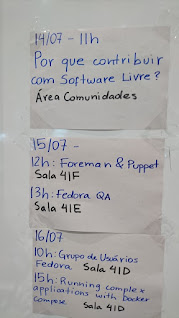 14/07 - 11h
Por que contribuir
com Software Livre?
Área Comunidades
15/07 -
12h: Foreman & Puppet
Sala 41F
13h: Fedora QA
Sala 41E
16/07
10h: Grupo de Usuários
Fedora Sala 41D
15h: Running complex
applications with Docker
Compose Sala 41D